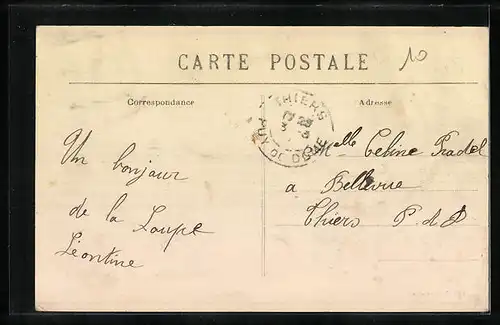 CARTE POSTALE
10
Correspondance
Adresse
THIERS
PUY DE DOME
Un bonjour
de la Loupe
Léontine
Melle Celine Pradel
a Bellevue
Thiers P. d D